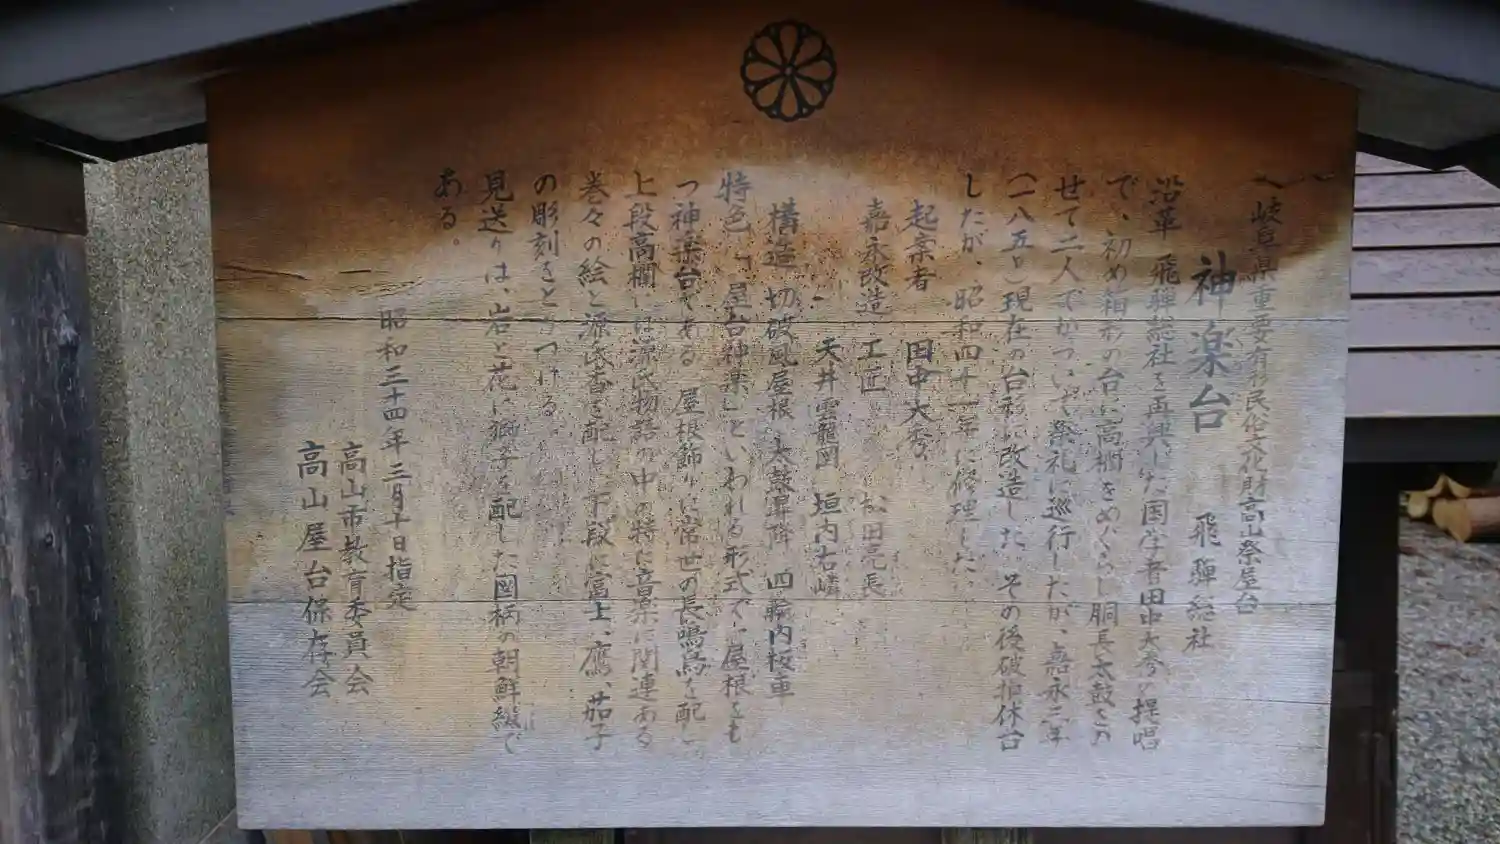 岐阜県重要有形民俗文化財高山祭屋台
神楽台 飛騨総社
沿革 飛騨総社を再興した国学者田中大秀の提唱
で、初め箱形の台に高欄をめぐらし胴長太鼓をの
せて二人でかついで祭礼に巡行したが、嘉永
現在の台形に改造した。その後破損休台
したが、昭和四十一年に修理した。
起案者 田中大秀
嘉永改造 工匠 松田亮長
天井雲龍図 垣内右嶙
構造 切破風屋根 太鼓昇降 四輪内板車
特色 「屋台神楽」といわれる形式で、屋根をも
つ神楽台である 屋根飾りに常世の長鳴鳥を配し、
上段高欄には源氏物語の中の特に音楽に関連ある
巻々の絵と源氏香を配し、下段に富士、鷹、茄子
の彫刻をとりつける。
見送りは、岩と花に獅子を配した図柄の朝鮮綴で
ある。
昭和三十四年三月十日指定
高山市教育委員会
高山屋台保存会